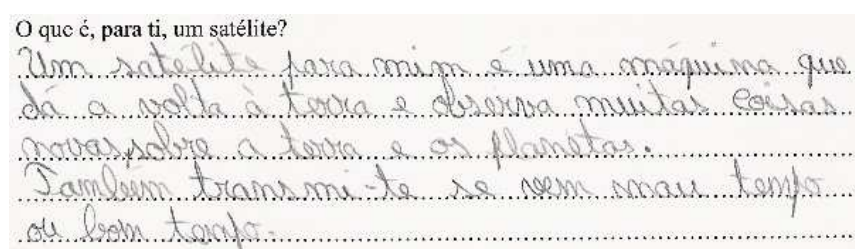 O que é, para ti, um satélite?
Um satélite para mim é uma máquina que
dá a volta à terra e observa muitas coisas
novas, sobre a terra e os planetas.
Também transmi-te se vem mau tempo
ou bom tempo.